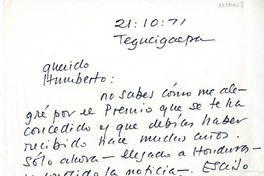 21.10.71
Tegucigalpa
querido
Humberto:
no sabes cómo me ale-
gré por el Premio que se te ha
concedido y que debías haber
recibido hace muchos años.
Sólo ahora — llegado a Honduras —
la noticia —